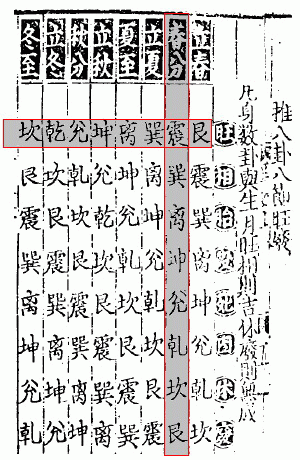 推八卦八節旺廢
凡身数卦與生月旺相則吉休廢則無成
旺相胎沒死囚休廢
立春艮震巽离坤兊乹坎
春分震巽离坤兊乹坎艮
立夏巽离坤兊乹坎艮震
夏至离坤兊乹坎艮震巽
立秋坤兊乹坎艮震巽离
秋分兊乹坎艮震巽离坤
立冬乾坎艮震巽离坤兊
冬至坎艮震巽离坤兊乹